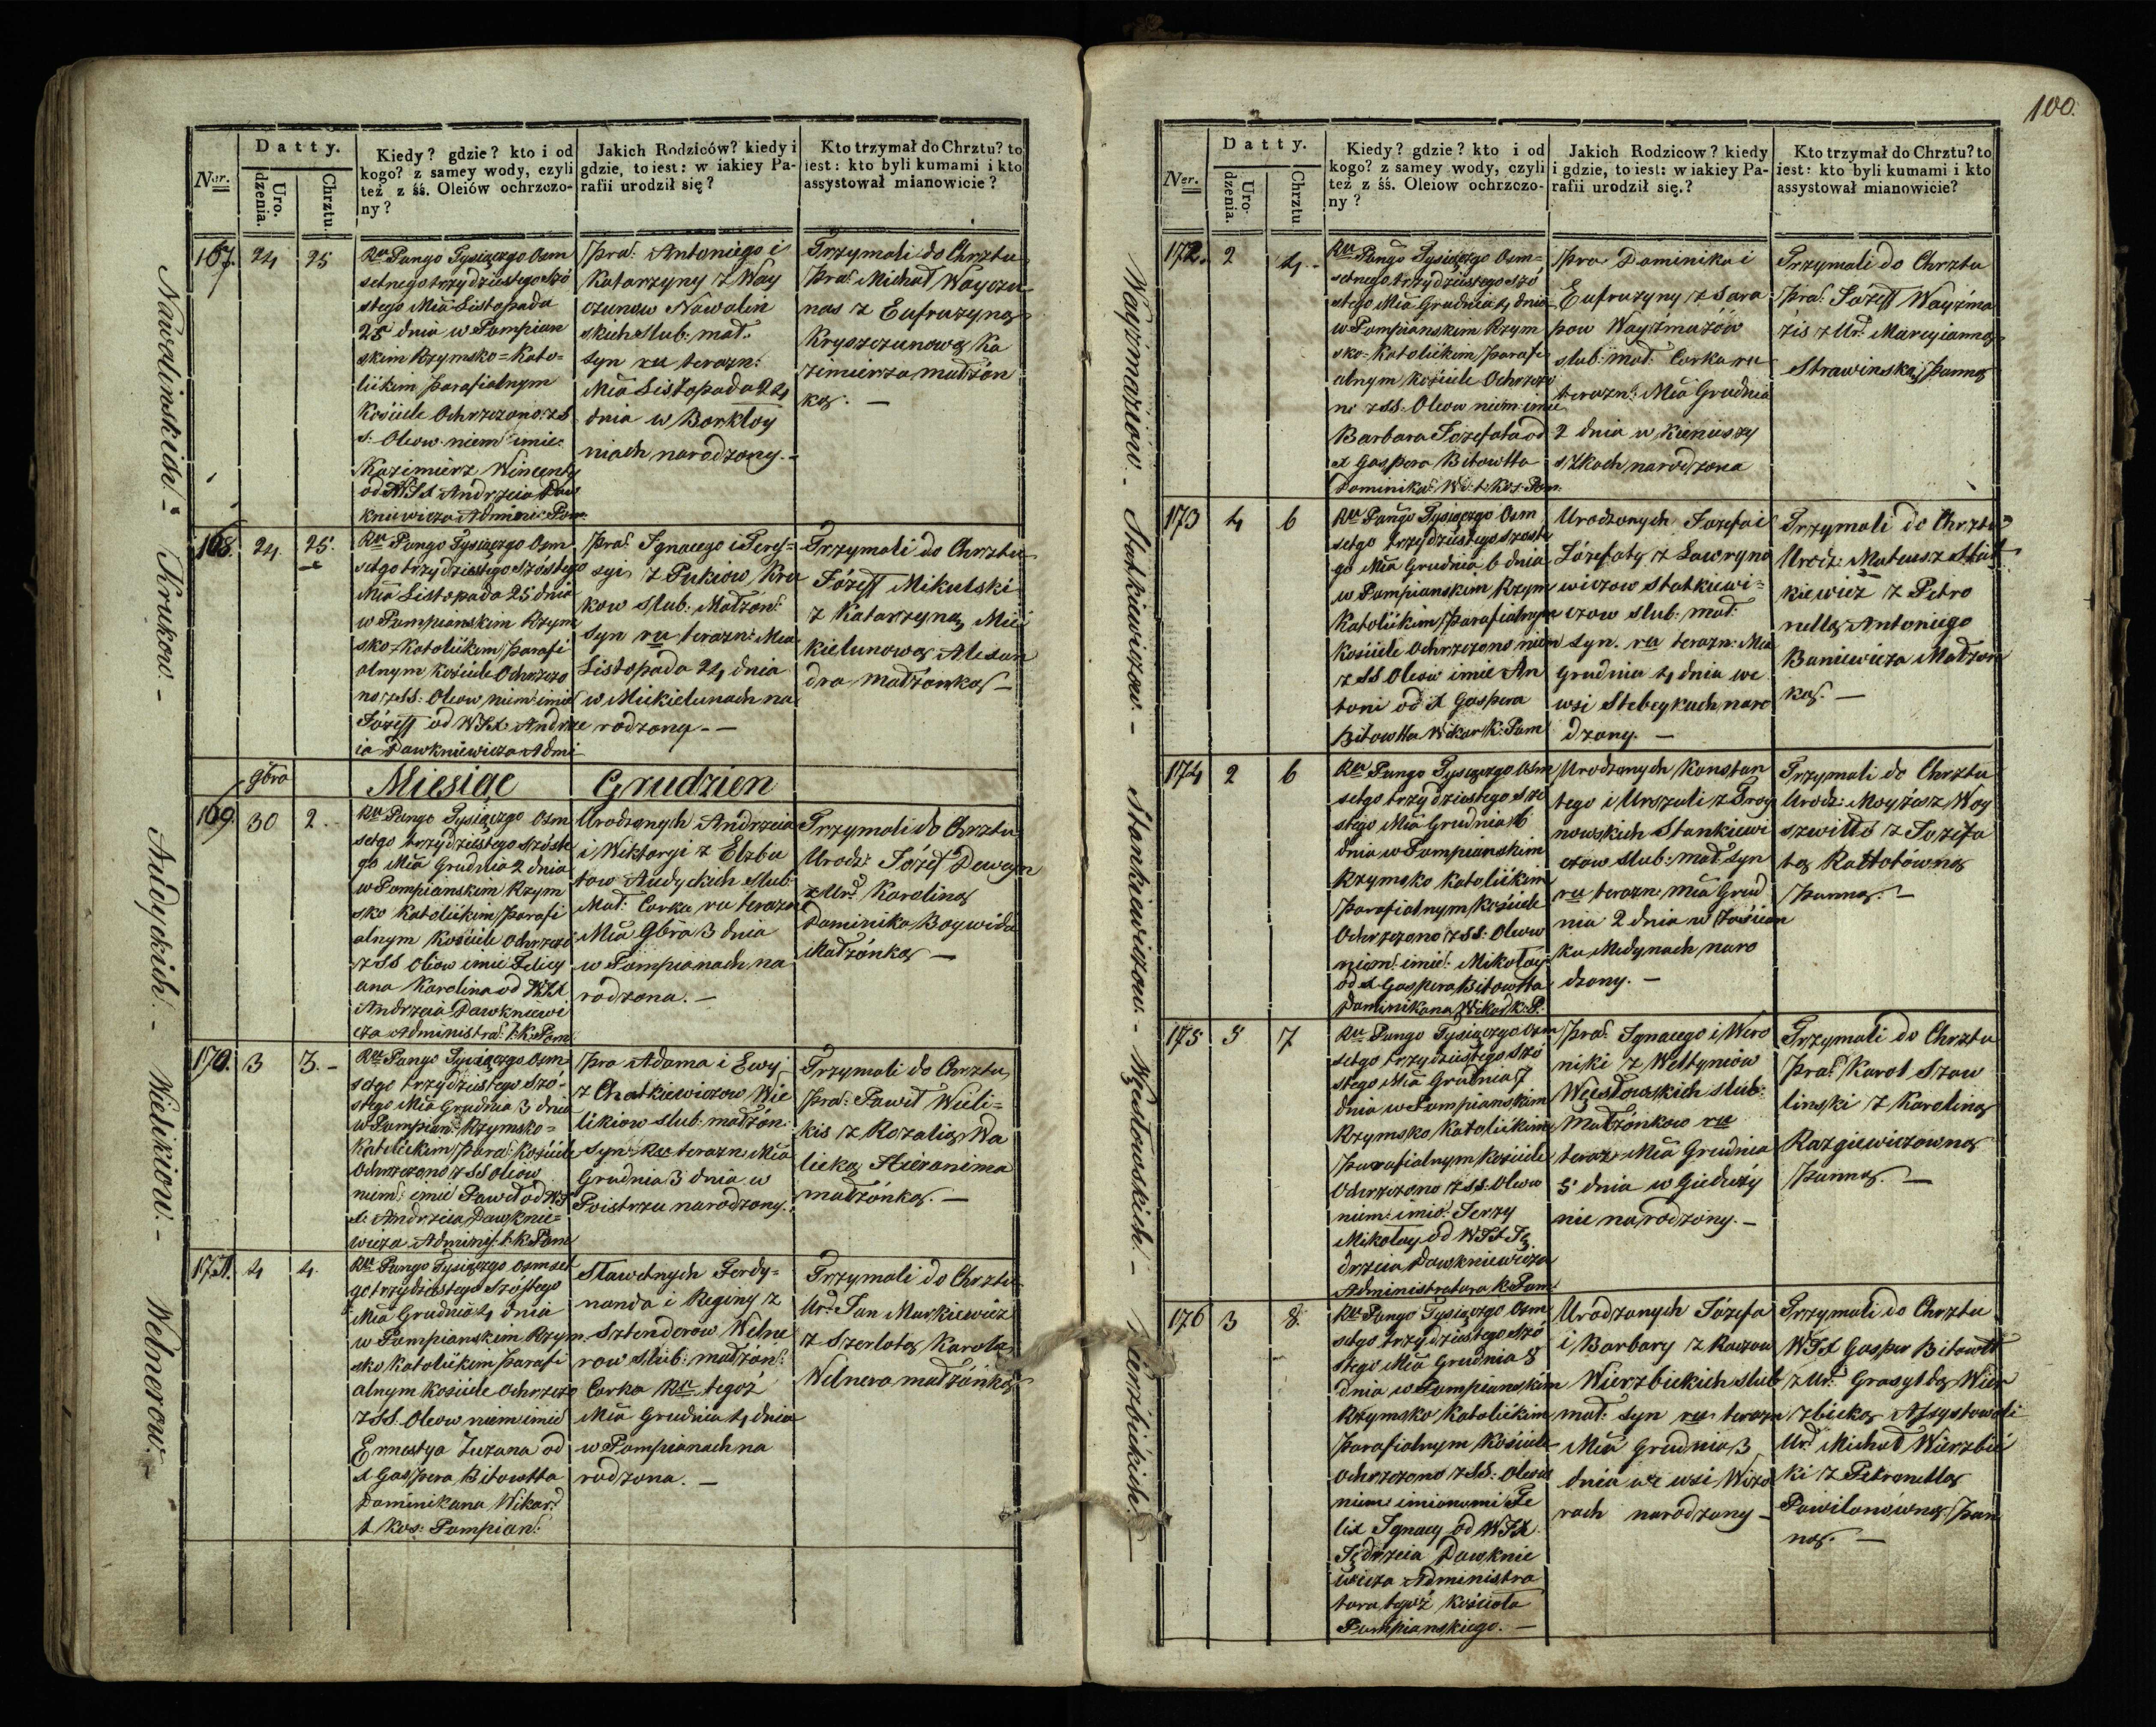 Nr.
Datty.
Uro.
dzenia.
Chrztu.
Kiedy? gdzie? kto i od
kogo? z samey wody, czyli
też z śś. Oleiów ochrzczo-
ny?
Jakich Rodziców? kiedy i
gdzie, to iest: w iakiey Pa-
rafii urodził się?
Kto trzymał do Chrztu? to
iest: kto byli kumami i kto
assystował mianowicie?
Nawalinskich. -
167. 24 25
Rku Pango Tysiączgo Osm
setnego trzydziestego Szó
stego Mia Listopada
25 dnia w Pompian
skim Rzymsko = Kato=
lickim Parafialnym
Kościele Ochrzczono: z S
s: Oleow niem imie
Kazimierz Wincenty
od WJX Andrzeia Daw
kniewicza Adminis: Pom
Prac: Antoniego i
Katarzyny z Way
czunow Nawalin
skich Slub: mał:
Syn ru terazn:
Mia Listopada 24
dnia w Borkłoy
niach narodzony. -
Trzymali do Chrztu
Prac: Michał Wayczu
nas z Eufruzyną
Kryszczunową Ka
zimierza małżon
ką. -
Krukow. -
168. 24. 25.
Rku Pango Tysiączgo Osm
setgo trzydziestego Szóstego
Mia Listopada 25 dnia
w Pompianskim Rzym
sko-Katolickim Parafi
alnym Kościele Ochrzczo
no z SS. Oleow niem: imie
Józeff od WJX Andrze
ia Dawkniewicza Admi
Prac: Ignacego i Teres=
syi z Pukiow Kru
kow Slub: Małżon:
Syn ru terazn: Mca
Listopada 24 dnia
w Mickielunach na
rodzony. - -
Trzymali do Chrztu
Józeff Mikulski
z Katarzyną Mic
kielunową Alexan
dra małżonką -
9bra
Miesiąc Grudzien
Audyckich. -
169. 30 2.
Rku Pango Tysiączgo Osm
setgo trzydziestego Szóste
go Mia Grudnia 2 dnia
w Pompianskim Rzym
sko Katolickim Parafi
alnym Kościele Ochrzczo
z SS Oleow imie Felicy
ana Karolina od WJX
Andrzeia Dawkniewi
cza Administra: t: K: Pom
Urodzonych Andrzeia
i Wiktoryi z Elzbu
tow Audyckich Slub:
Mał: Corka ru terazn
Mia 9bra 3 dnia
w Pompianach na
rodzona. -
Trzymali do Chrztu
Urodz: Józef Dewoyn
z Ur: Karoliną
Dominika Boywida
Małżonką -
Wielikiow. -
170. 3 3. -
Rku Pango Tysiączgo Osm
setgo trzydziestego Szó-
stego Mia Grudnia 3 dnia
w Pompian: Rzymsko=
Katolickim Para: Kościele
Ochrzczono z SS Oleiow
niem: imie Paweł od WJ
X Andrzeia Dawknie=
wicza Adminis: t: K: Pom
Pra Adama i Ewy
z Chatkiewiczow Wie
likiow slub: małżon
Syn Ru terazn: Mia
Grudnia 3 dnia w
Poistrzu narodzony.
Trzymali do Chrztu
Pra: Paweł Wieli=
kis z Rozalią Wa
licką Hieronima
małżonką. -
Welnerow. -
171. 4 4.
Rku Pango Tysiączgo Osmset
go trzydziestego Szóstego
Mia Grudnia 4 dnia
w Pompianskim Rzym
sko Katolickim Parafi
alnym Kościele Ochrzczo
z SS. Oleow niem imie
Ernestya Zuzana od
X Gaspera Bitowtta
Dominikana Wikar:
t Kos: Pompian:
Sławetnych Ferdy=
nanda i Reginy z
Sztenderow Welne
row slub: małżon:
Corka Ru tegoż
Mia Grudnia 4 dnia
w Pompianach na
rodzona. -
Trzymali do Chrztu
Ur: Jan Markiewicz
z Szerlotą Karola
Welnera małżonką
100.
Nr.
Datty.
Uro.
dzenia.
Chrztu
Kiedy? gdzie? kto i od
kogo? z samey wody, czyli
też z śś. Oleiow ochrzczo-
ny?
Jakich Rodzicow? kiedy
i gdzie, to iest: w iakiey Pa-
rafii urodził się.?
Kto trzymał do Chrztu? to
iest: kto byli kumami i kto
assystował mianowicie?
Wayzmużiow. -
172. 2 4. -
Rku Pango Tysiączgo Osm=
setnego trzydziestego Szó
stego Mia Grudnia 4 dnia
w Pompianskim Rzym
sko-Katolickim Parafi
alnym Kościele Ochrzczo
no z SS: Oleow niem: imie
Barbara Jozefata od
X Gaspera Bitowtta
Dominika: Wi: t: Kos: Pom:
Pra Dominika i
Eufruzyny z Sara
pow Wayzmużów
slub: mał: Corka ru
terazn: Mia Grudnia
2 dnia w Kieniuszy
szkach narodzona
Trzymali do Chrztu
Pra: Józeff Wayźmu
żis z Ur: Marcyianną
Strawinską Panną
Statkiewiczow. -
173 4 6
Rku Pango Tysiączgo Osm
setgo trzydziestego Szoste
go Mia Grudnia 6 dnia
w Pompianskim Rzym
Katolickim Parafialnym
Kościele Ochrzczono niem
z SS Oleow imie An
toni od X Gaspera
Bitowtta Wikar K: Pom
Urodzonych Jozefa i
Józefaty z Ławryno
wiczow Statkiewi=
czow slub: mał:
Syn. ru terazn: Mca
Grudnia 4 dnia we
wsi Stebeykach naro
dzony. -
Trzymali do Chrztu
Urodz: Mateusz Stat
kiewicz z Petro
nellą Antoniego
Baniewicza Małżon
ką. -
Stankiewiczow. -
174 2 6
Rku Pango Tysiączgo Osm
setgo trzydziestego Szó
stego Mia Grudnia 6
dnia w Pompianskim
Rzymsko Katolickim
Parafialnym Kościele
Ochrzczono z SS: Oleow
niem: imie: Mikołay
od X Gaspera Bitowtta
Dominikana Wikar: K: P:
Urodzonych Konstan
tego i Urszuli z Troy
nowskich Stankiewi
czow slub: mał. Syn
ru terazn: Mia Grud
nia 2 dnia w Zaścian
ku Medynach naro
dzony. -
Trzymali do Chrztu
Urodz: Moyżesz Woy
szwiłło z Jozefa
tą Rattotówną
Panną. -
Węsłowskich. -
175 5 7
Rku Pango Tysiączgo Osm
setgo trzydziestego Szó
stego Mia Grudnia 7
dnia w Pompianskim
Rzymsko Katolickim
Parafialnym Kościele
Ochrzczono z SS. Oleow
niem: imie: Jerzy
Mikołay od WJX Ję
drzeia Dawkniewicza
Administratora K: Pom:
Pra: Ignacego i Wero
niki z Wełtyniow
Węsłowskich slub:
Małżonkow ru
teraz: Mia Grudnia
5 dnia w Giedweży
nie narodzony. -
Trzymali do Chrztu
Pra: Karol Szaw
linski z Karoliną
Razgiewiczowną
Panną. -
Wierzbickich. -
176 3 8.
Rku Pango Tysiączgo Osm
setgo trzydziestego Szó
stego Mia Grudnia 8
dnia w Pompianskim
Rzymsko Katolickim
Parafialnym Kościele
Ochrzczono z SS: Oleow
niem imionami Fe
lix Ignacy od WJX
Jędrzeia Dawknie
wicza Administra
tora tegoż Kościoła
Pompianskiego. -
Urodzonych Józefa
i Barbary z Raczow
Wierzbickich slub
mał: Syn ru terazn
Mia Grudnia 3
dnia we wsi Wizo
rach narodzony -
Trzymali do Chrztu
WJX Gasper Bitowtt
z Ur: Grasyldą Wier
zbicką Assystowali
Ur: Michał Wierzbic
ki z Petronellą
Powilonówną Pan
ną. -